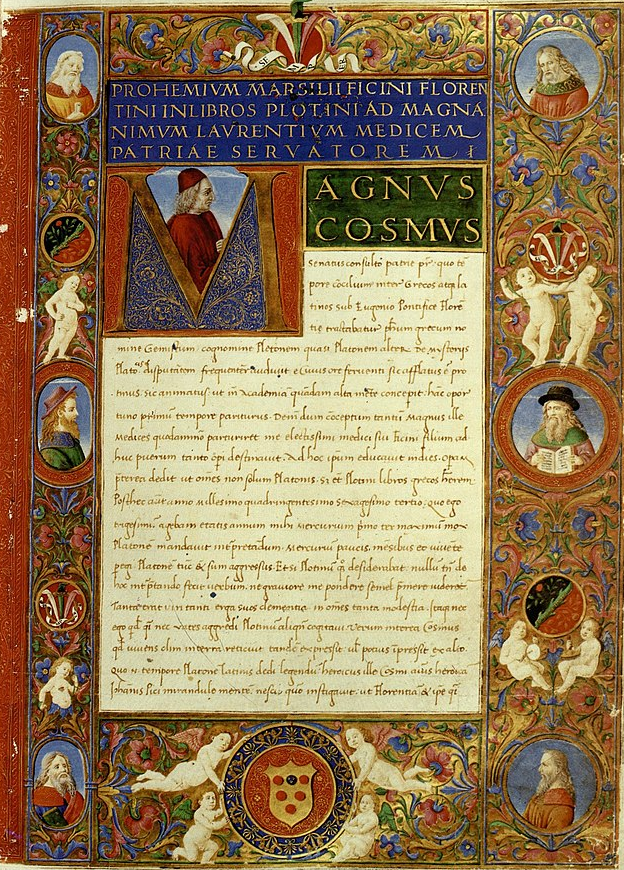 PROHEMIVM MARSILII FICINI FLOREN
TINI IN LIBROS PLOTINI AD MAGNA
NIMVM LAVRENTIVM MEDICEM
PATRIAE SERVATOREM
MAGNVS
COSMVS
Senatus consulto patrie pr quo te
pore cocilium inter Grecos atq la
tinos sub Eugenio Pontifice Flore
tie tractabatur phum grecum no
mine Gemistum cognomine Pletonem quasi Platonem alterum de mysteriis
Platonis disputatem frequenter audivit e cuius ore ferventi sic afflatus e pro
tinus sic animatus ut in Academia quadam alta mete concepit hac opor
tuno primum tempore pariturus Deinde dum coceptum tantum Magnus ille
Medices quodammodo parturiret me electissimi medici sui Ficini filium ad
huc puerum tanto operi destinavit Ad hoc ipsum educavit indies Operam
preterea dedit ut omes non solum Platonis sed et Plotini libros grecos haberem
Posthec aut anno millesimo quadringentesimo sexagesimo tertio quo ego
trigesimum agebam etatis annum mihi Mercurium primo ter maximum mox
Platone mandavit interpretadum Mercurium paucis mesibus eo vivete
peregi Platone tuc etiam sum aggressus Etsi Plotinum quoque desiderabat nullum tn de
hoc interptando fecit verbum ne graviore me pondere semel premere videretur
Tanta erat viri tanti erga suos clementia in omes tanta modestia Itaq nec
ego quidem quasi nec vates aggredi Plotinum aliqn cogitavi Verum interea Cosmus
qd vivens olim in terra reticuit tandem expressit vel potius impressit ex alto
Quo n tempore Platone latinis dedi legendum heroicus ille Cosmi animus heroicam
Iohannis Pici Mirandule mentem nescio quo instigavit ut Florentiam & ipse quasi